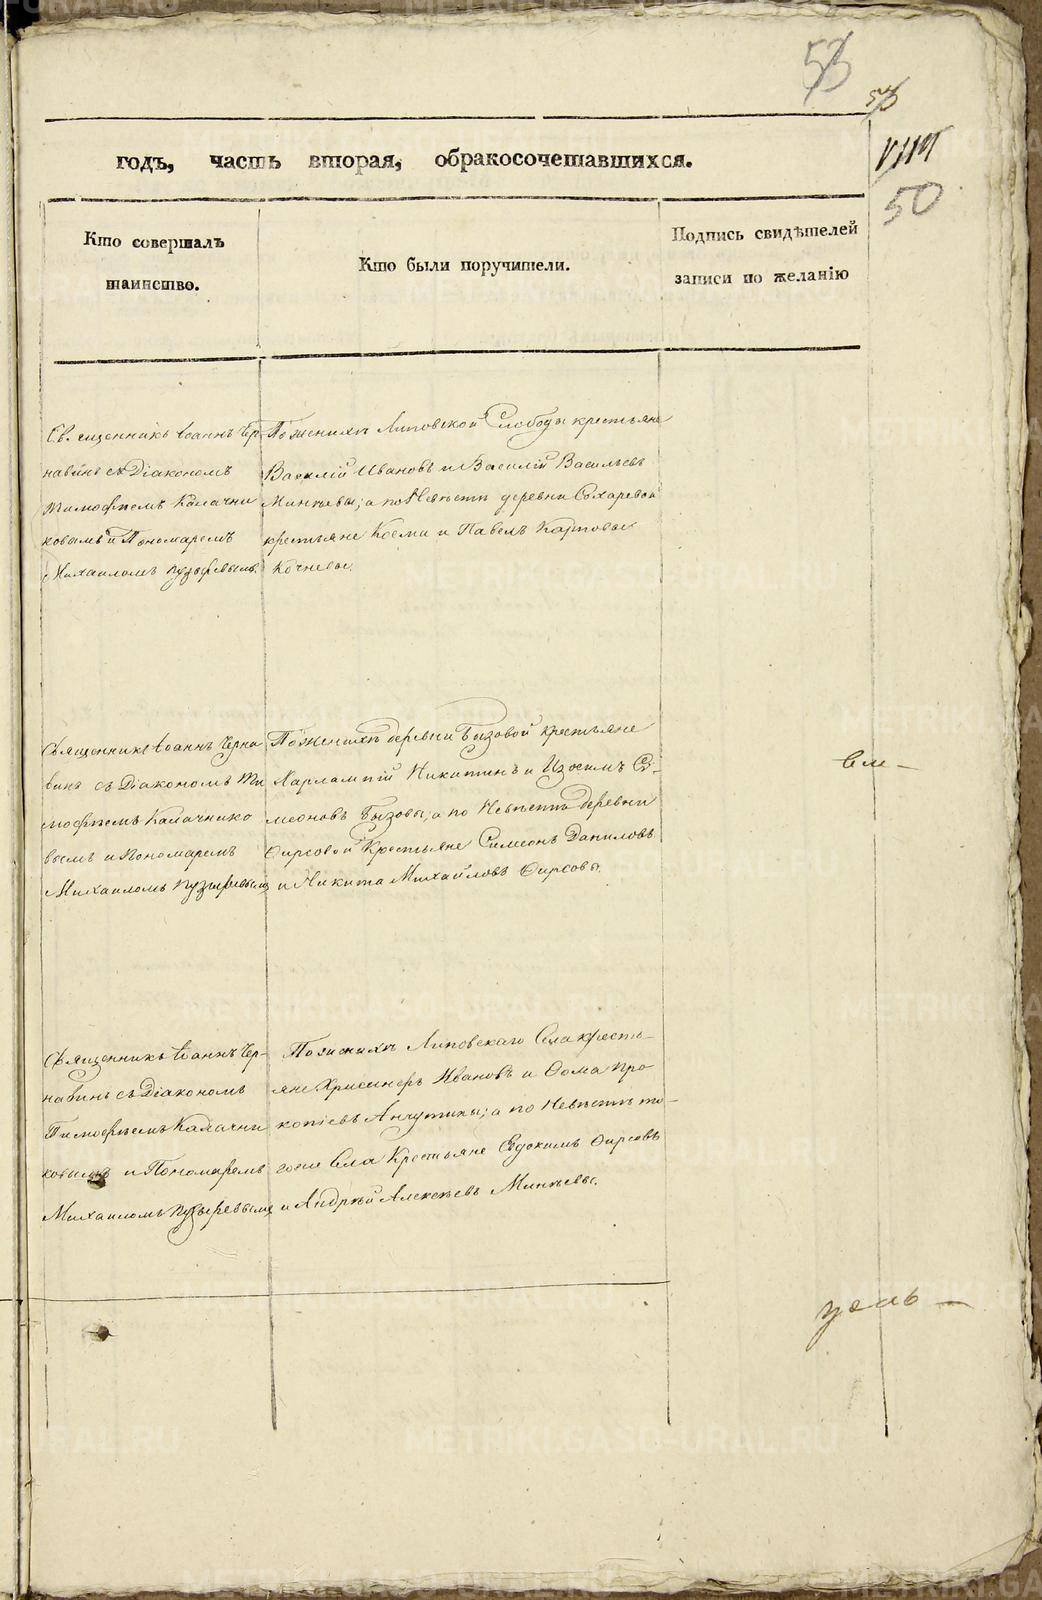 53
53
VIII
50
годъ, часть вторая, обракосочетавшихся.
Кто совершалъ
таинство.
Кто были поручители.
Подпись свидѣтелей
записи по желанію
Священникъ Іоаннъ Чер-
навинъ съ Діакономъ
Тимофѣемъ Калачни
ковымъ и Пономаремъ
Михаиломъ Пузыревымъ.
По женихѣ Липовской Слободы крестьяне
Василій Ивановъ и Василій Васильевъ
Минѣевы; а по Невѣстѣ деревни Сохаревой
крестьяне Косма и Павелъ Карповы
Кочневы.
Священникъ Іоаннъ Черна
винъ съ Діакономъ Ти
мофѣемъ Калачнико
вымъ и Пономаремъ
Михаиломъ Пузыревымъ
По женихѣ деревни Бызовой крестьяне
Харлампій Никитинъ и Изосимъ Си-
меоновъ Бызовы; а по Невѣстѣ деревни
Фирсовой Крестьяне Симеонъ Даниловъ
и Никита Михайловъ Фирсовы.
вле-
Священникъ Іоаннъ Чер-
навинъ съ Діакономъ
Тимофѣемъ Калачни
ковымъ и Пономаремъ
Михаиломъ Пузыревымъ
По женихѣ Липовскаго Села кресть-
яне Ивановъ и Фома Про
копіевъ Анчутины; а по Невѣстѣ то-
гоже Села Крестьяне Евдокимъ Фирсовъ
и Андрѣй Алексѣевъ Минѣевы.
METRIKI.GASO-URAL.RU